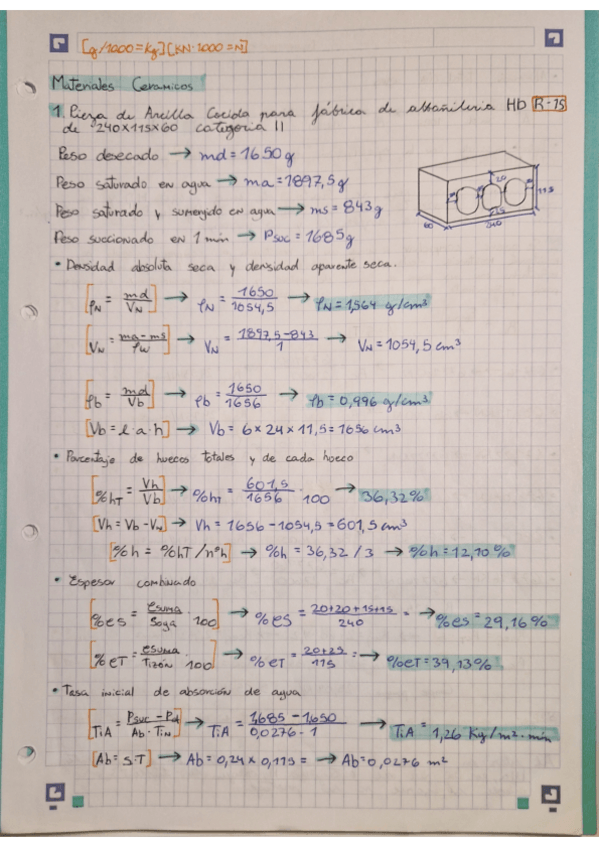 [g/1000=kg][KN·1000=N]
Materiales Ceramicos
1. Pieza de Arcilla Cocida para fábrica de albañileria HD R-15
de 240x115x60 categoria II
Peso desecado → md = 1650 g
Peso saturado en agua → ma = 1897,5 g
Peso saturado y sumergido en agua → ms = 843 g
Peso succionado en 1 min → Psuc = 1685 g
20
115
60
240
• Densidad absoluta seca y densidad aparente seca.
[ρN = md/VN] → ρN = 1650/1054,5 → ρN = 1,564 g/cm³
[VN = ma-ms/ρw] → VN = 1897,5-843/1 → VN = 1054,5 cm³
[ρb = md/Vb] → ρb = 1650/1656 → ρb = 0,996 g/cm³
[Vb = l·a·h] → Vb = 6 x 24 x 11,5 = 1656 cm³
• Porcentaje de huecos totales y de cada hueco
[%hT = Vh/Vb] → %hT = 601,5/1656 · 100 → 36,32%
[Vh = Vb - VN] → Vh = 1656 - 1054,5 = 601,5 cm³
[%h = %hT / nºh] → %h = 36,32 / 3 → %h = 12,10%
• Espesor combinado
[%es = esuma/Soga · 100] → %es = 20+20+15+15/240 = → %es = 29,16%
[%eT = esuma/Tizón · 100] → %eT = 20+25/115 = → %eT = 39,13%
• Tasa inicial de absorción de agua
[TiA = Psuc - Pd/Ab · Tin] → TiA = 1,685 - 1,650/0,0276 · 1 → TiA = 1,26 Kg/m²·min
[Ab = S·T] → Ab = 0,24 x 0,115 = → Ab = 0,0276 m²